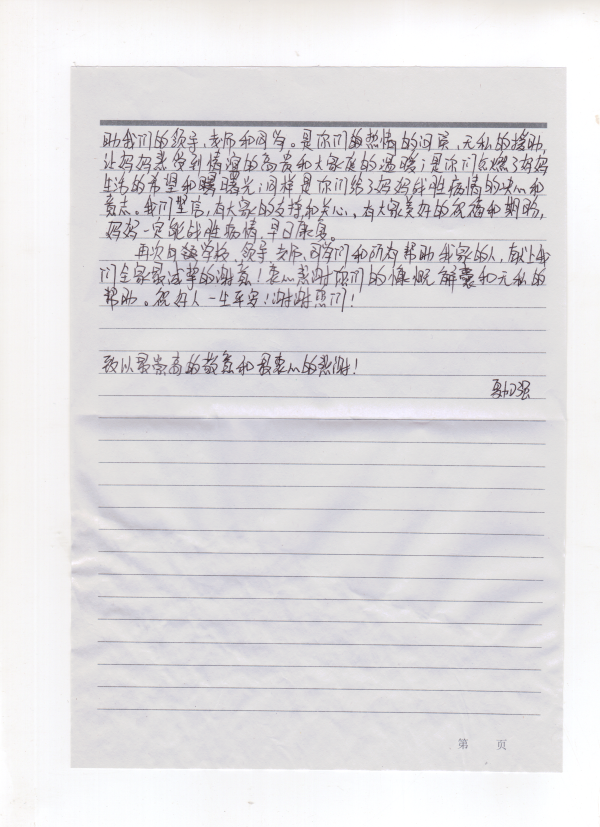 助我们的领导、老师和同学。是你们的热情的问候,无私的援助,
让妈妈感受到情谊的高贵和大家庭的温暖;是你们点燃了妈妈
生活的希望和曙光;同样是你们给了妈妈战胜病情的决心和
意志。我们坚信,有大家的支持和关心、有大家美好的祝福和期盼,
妈妈一定能战胜病情,早日康复。
再次向学校、领导、老师、同学们和所有帮助我家的人,献上我
们全家最诚挚的谢意!衷心感谢你们的慷慨解囊和无私的
帮助。祝好人一生平安!谢谢您们!
致以最崇高的敬意和最衷心的感谢!
强
第 页